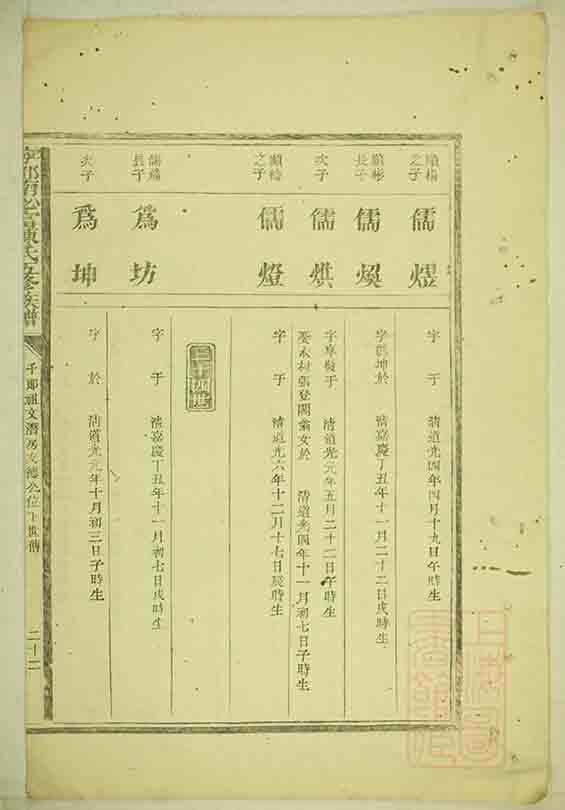 之子
儒煜
字　于　清道光四年四月十九日午時生
長子
儒煥
坤於　清嘉慶丁丑年十一月二十二日戌時生
次子
儒烘
于　清道光元年五月二十二日午時生
娶永村張登閣翁女於　清道光四年十一月初七日子時生
之子
儒燈
字　于　清道光六年十二月十七日辰時生
三十四世
儒
長子
爲坊
字　于　清嘉慶丁丑年十一月初七日戌時生
次子
爲坤
字　於　清道光元年十月初三日子時生
陳氏五修族譜
千郎祖文
二十二
上海圖書館藏